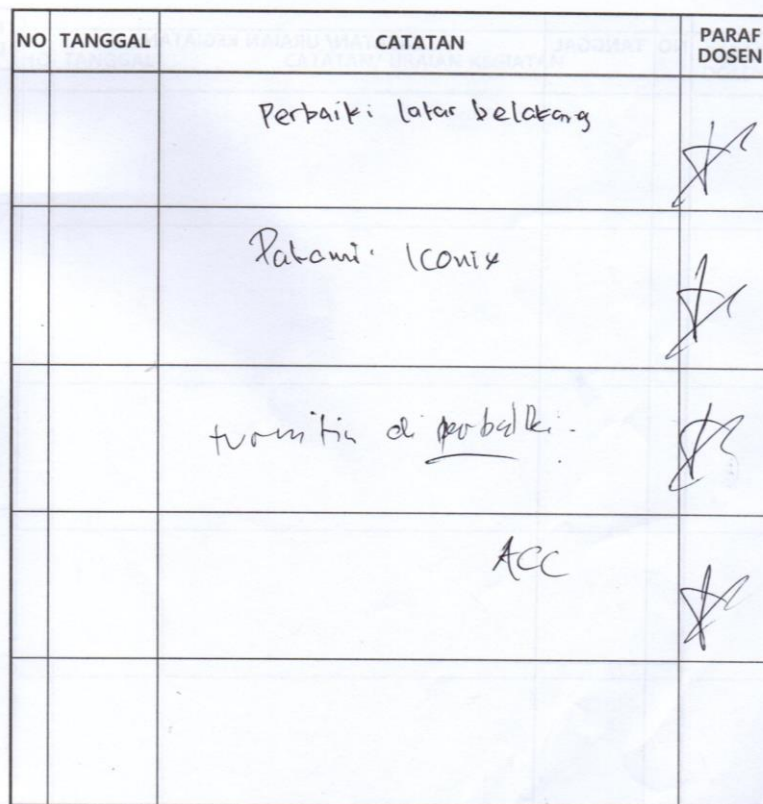 NO TANGGAL CATATAN PARAF DOSEN
Perbaiki latar belakang
Pahami Iconix
turnitin di perbaiki.
ACC